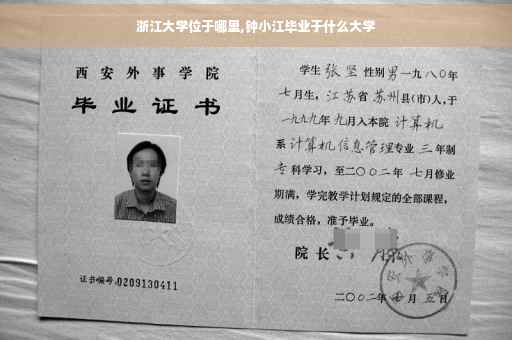 浙江大学位于哪里,钟小江毕业于什么大学
西安外事学院
毕业证书
证书编号:0209130411
学生 张坚 性别 男 一九八〇年
七月生，江苏省 苏州县(市)人，于
一九九九年 九月入本院 计算机
系 计算机信息管理专业 三 年制
专 科学习，至二〇〇二年 七月修业
期满，学完教学计划规定的全部课程，
成绩合格，准予毕业。
院长
二〇〇二年 月 五日